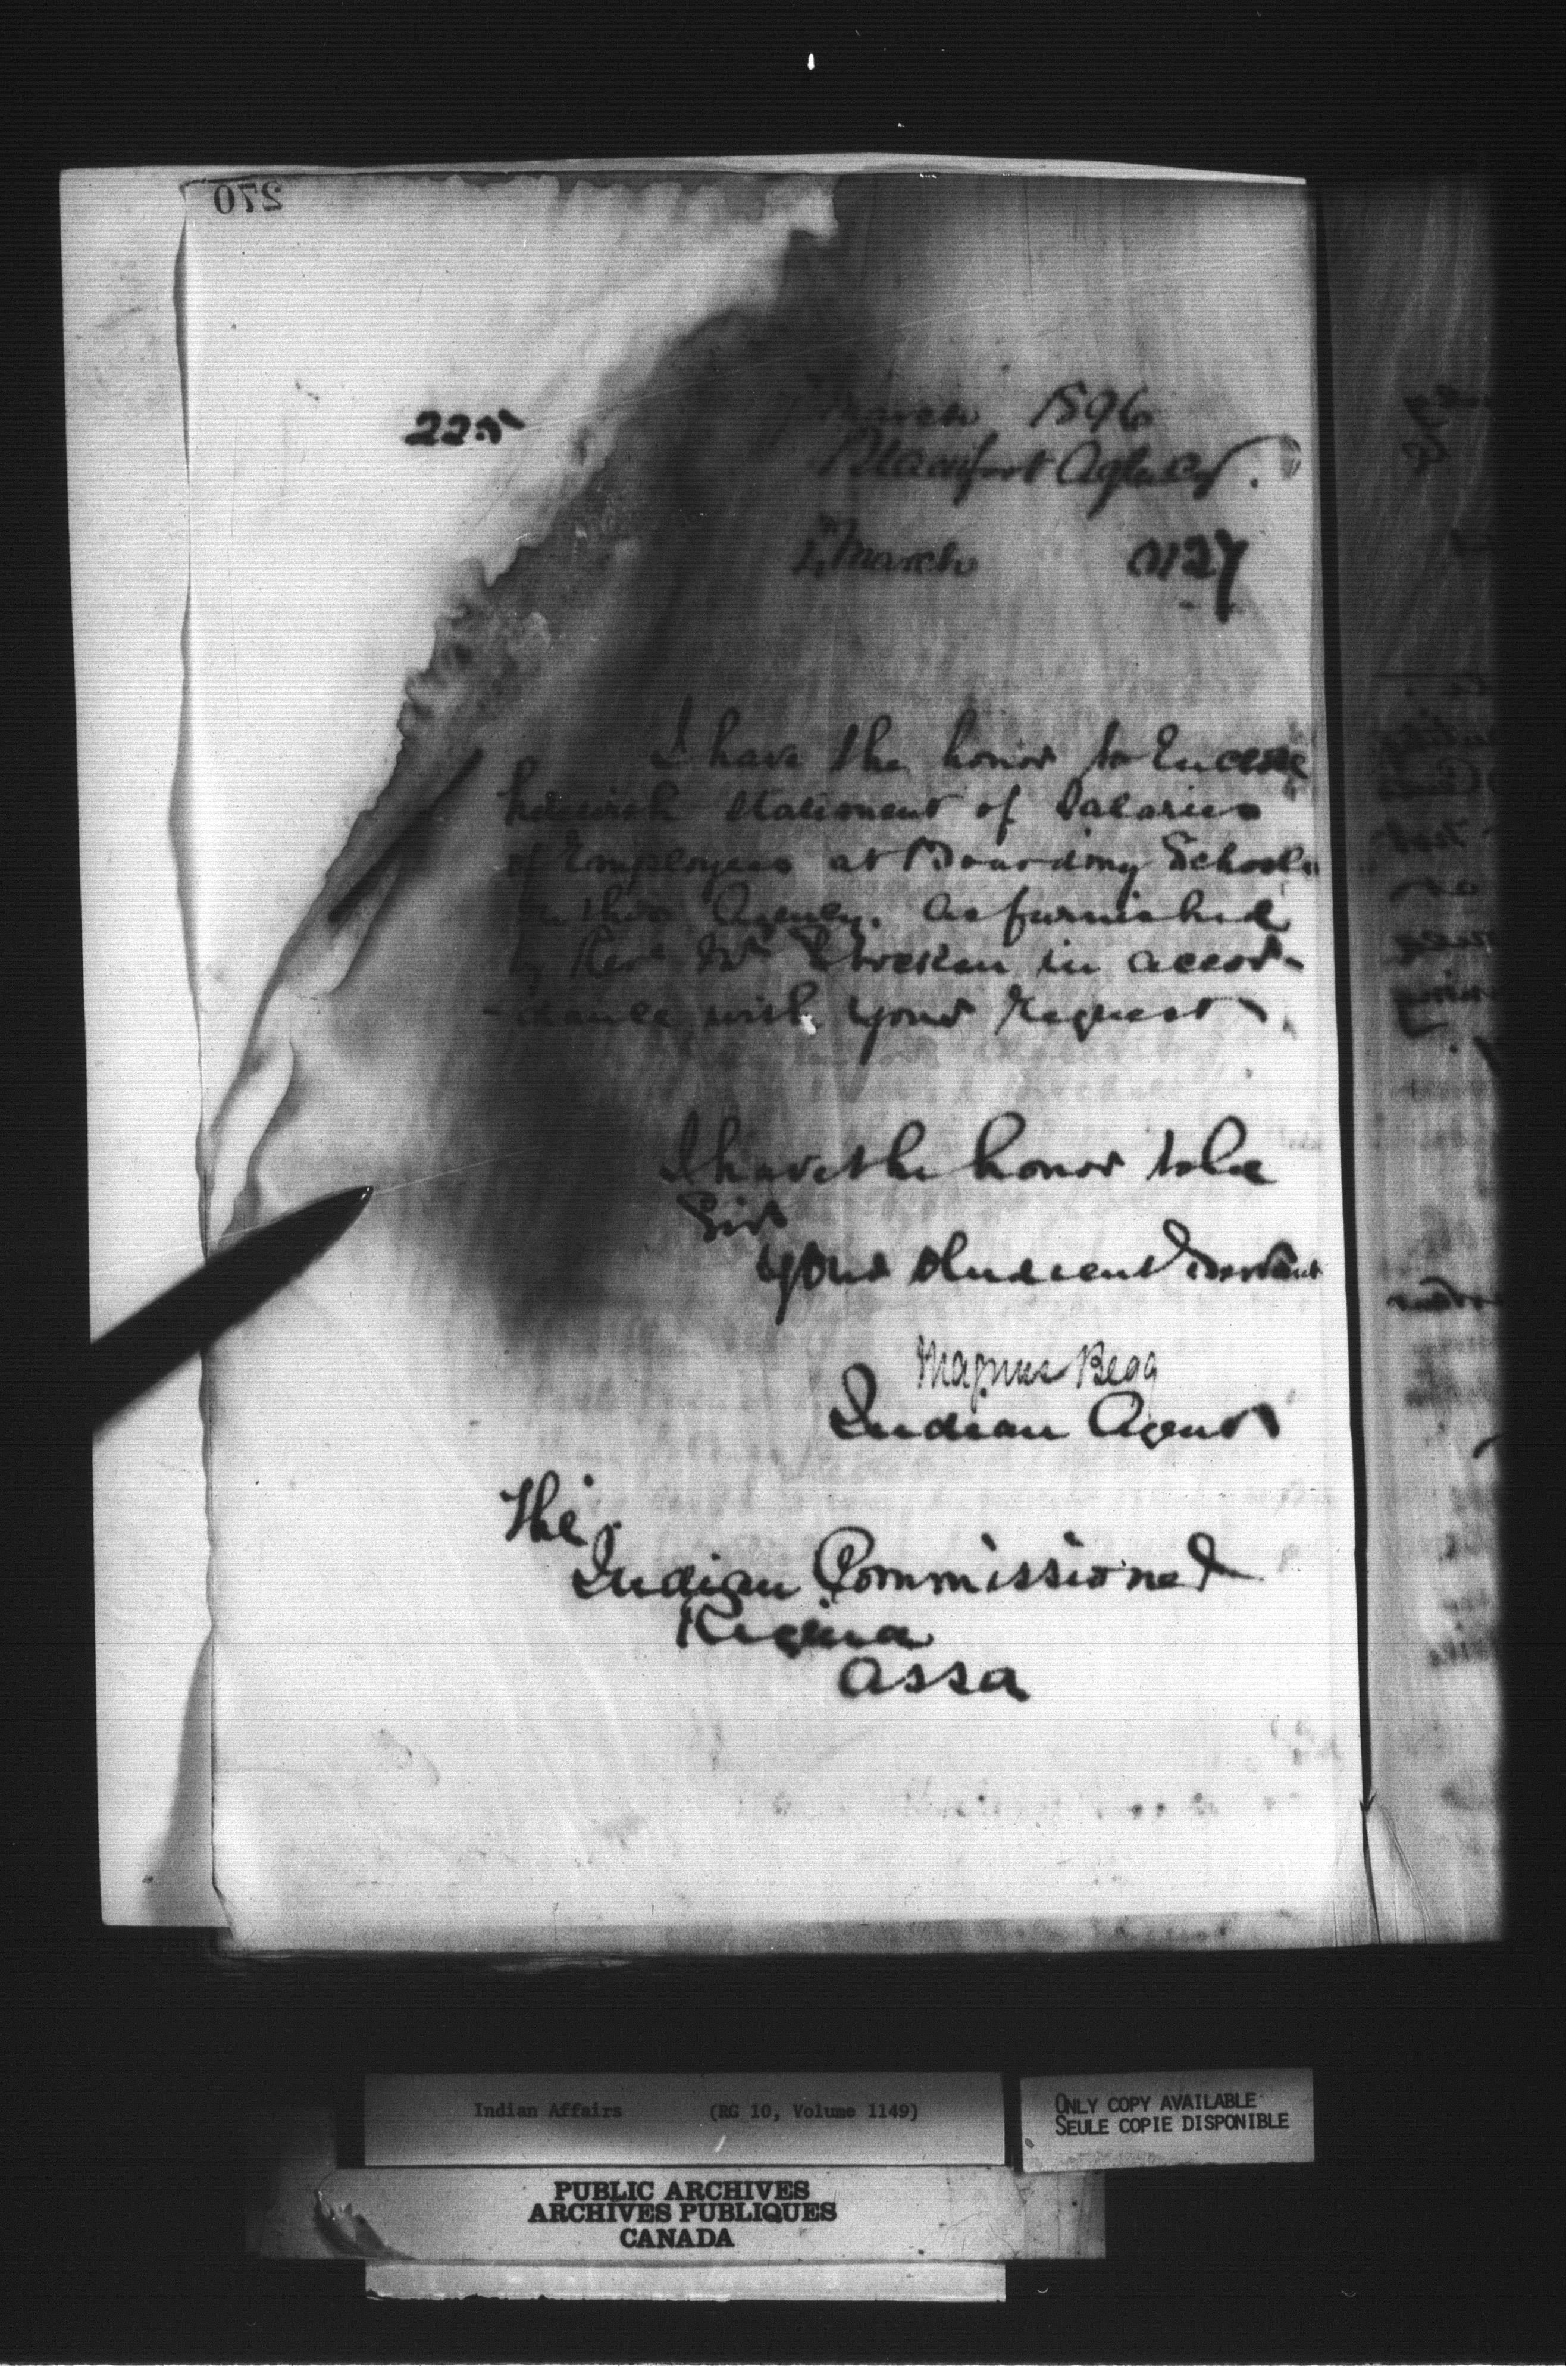 270
225
7 March 1896
Blackfoot Agency.
4th March 0127
I have the honor to Enclose
herewith statement of Salaries
of Employees at Boarding Schools
on this Agency. as furnished
by Revd Mr Stocken in accor-
-dance with your request
I have the honor to be
Sir
your obedient Servant
Magnus Begg
Indian Agent
The
Indian Commissioner
Regina
Assa
Indian Affairs (RG 10, Volume 1149)
ONLY COPY AVAILABLE
SEULE COPIE DISPONIBLE
PUBLIC ARCHIVES
ARCHIVES PUBLIQUES
CANADA